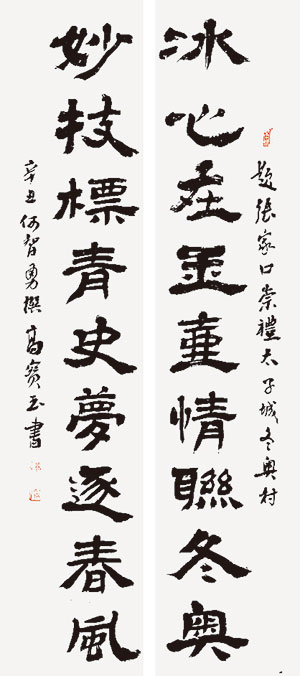 題張家口崇禮太子城冬奧村
冰心在玉壺情聯冬奧
妙技標青史夢逐春風
辛丑何智勇撰高寶玉書